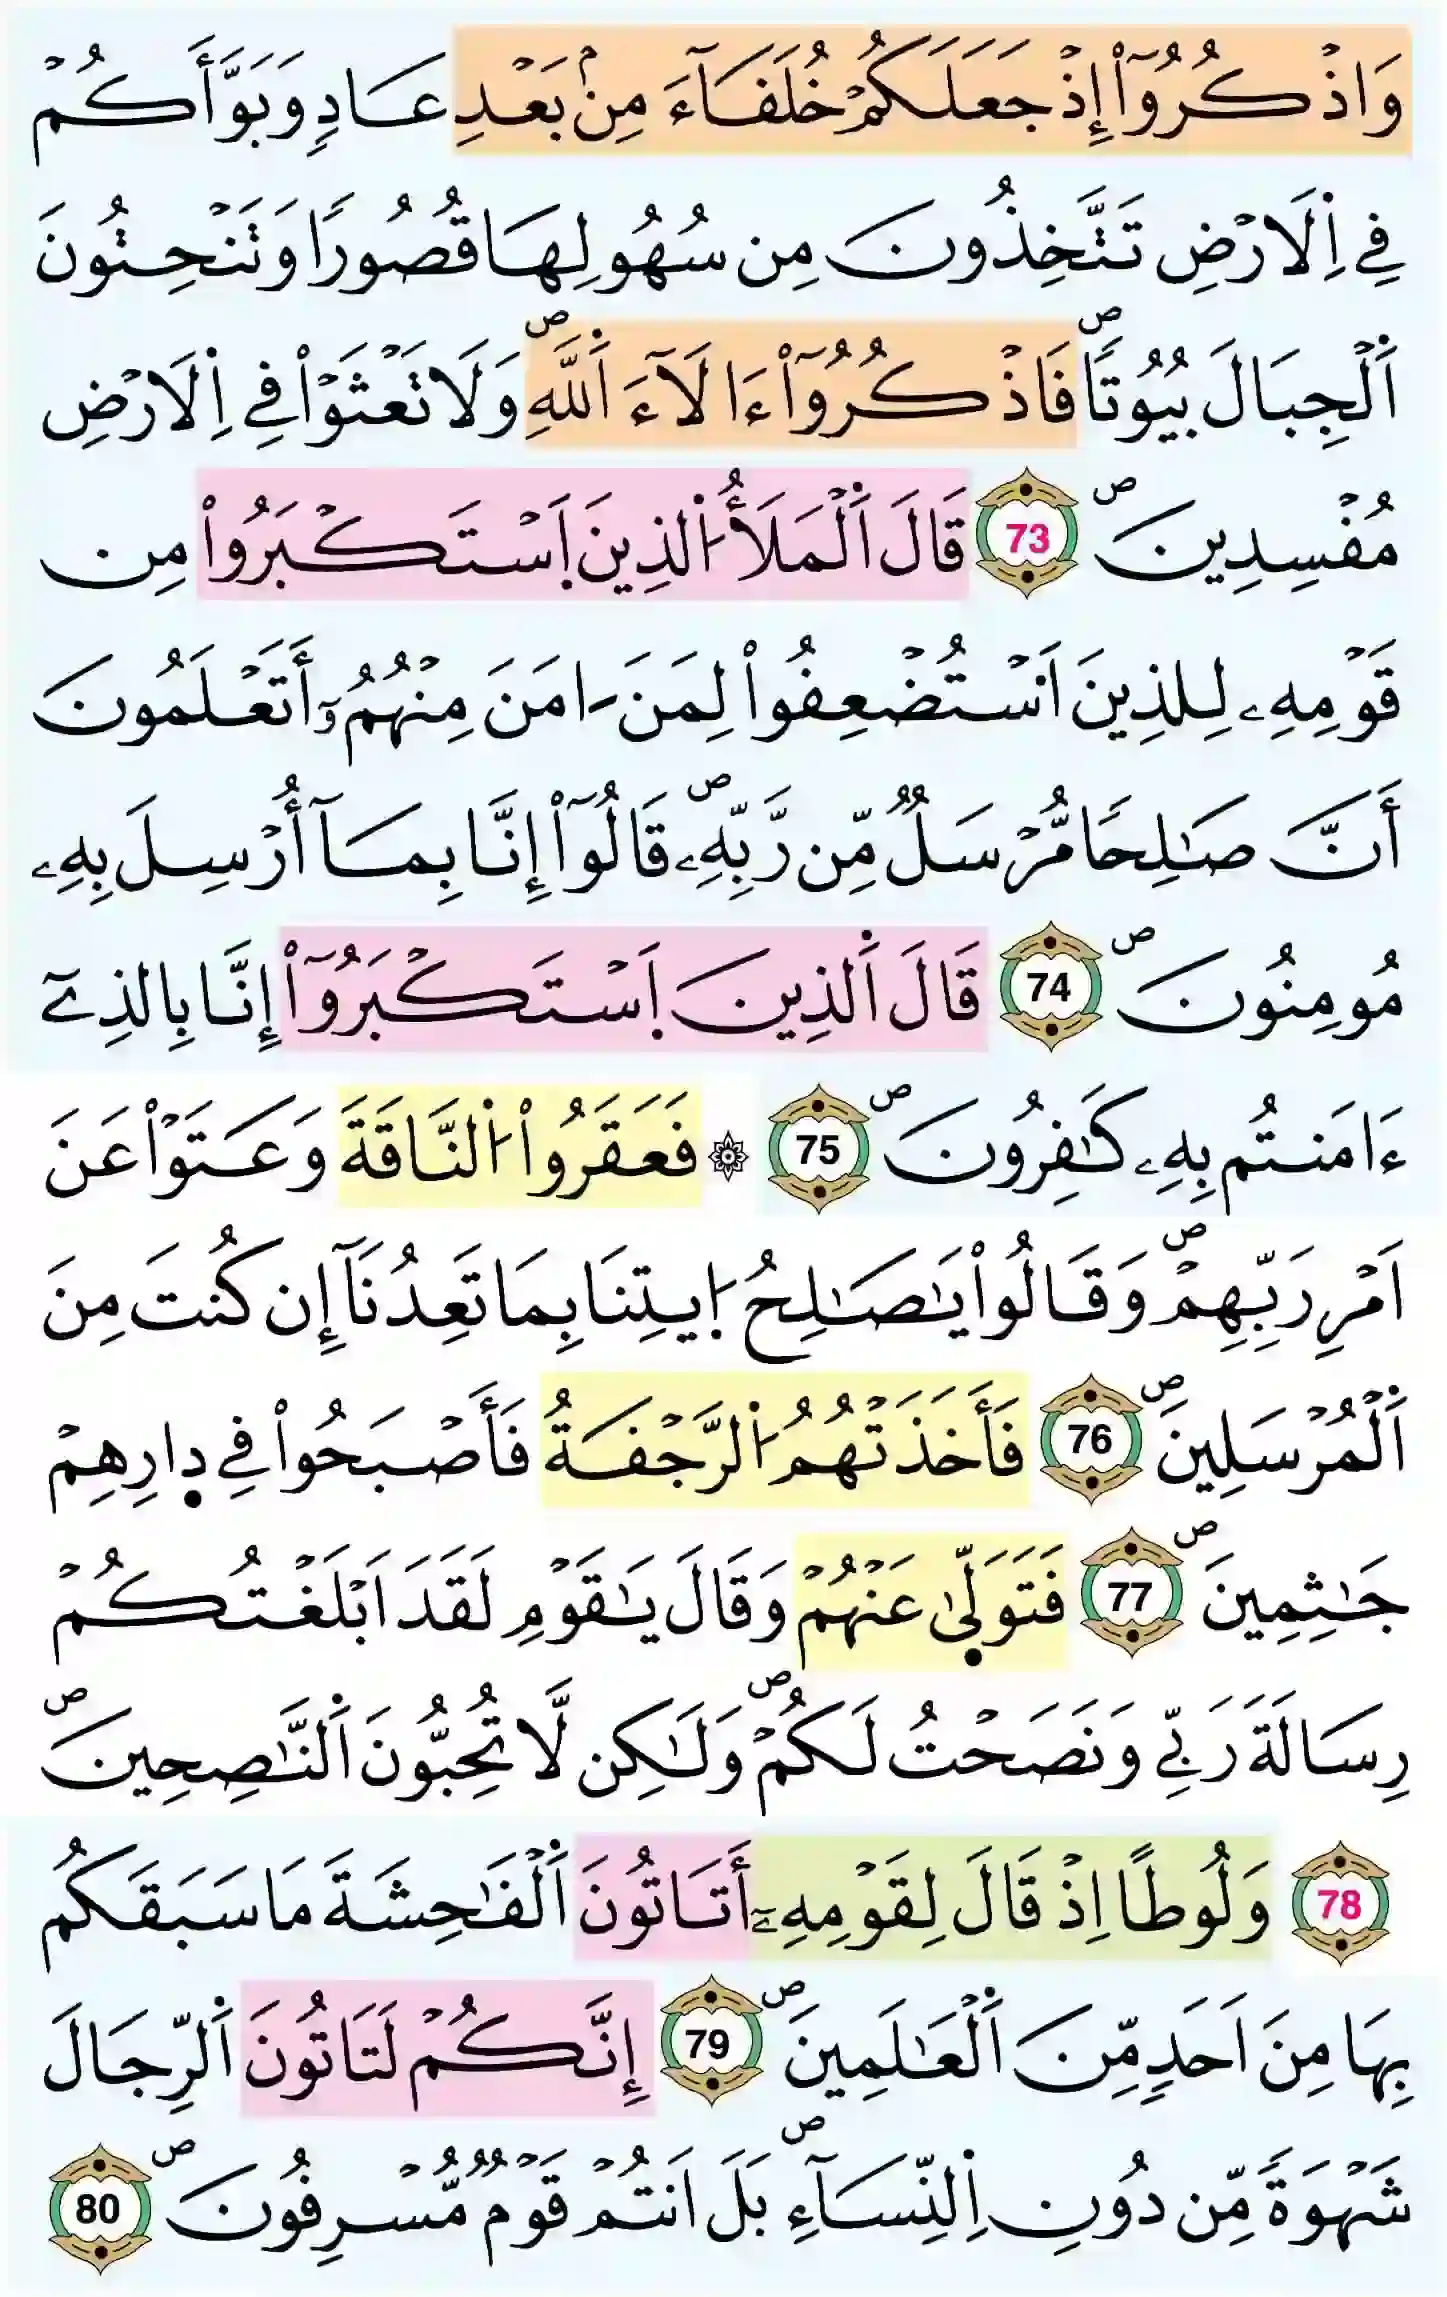 وَاذْكُرُوٓاْ إِذْ جَعَلَكُمْ خُلَفَآءَ مِنۢ بَعْدِ عَادٖ وَبَوَّأَكُمْ
فِے اِ۬لَارْضِ تَتَّخِذُونَ مِن سُهُولِهَا قُصُورٗا وَتَنْحِتُونَ
اَ۬لْجِبَالَ بُيُوتاٗۖ فَاذْكُرُوٓاْ ءَالَآءَ اَ۬للَّهِۖ وَلَا تَعْثَوْاْ فِے اِ۬لَارْضِ
مُفْسِدِينَۖ 73 قَالَ اَ۬لْمَلَأُ اُ۬لذِينَ اَ۪سْتَكْبَرُواْ مِن
قَوْمِهِۦ لِلذِينَ اَ۟سْتُضْعِفُواْ لِمَنَ اٰمَنَ مِنْهُمُۥٓ أَتَعْلَمُونَ
أَنَّ صَٰلِحاٗ مُّرْسَلٞ مِّن رَّبِّهِۦۖ قَالُوٓاْ إِنَّا بِمَآ أُرْسِلَ بِهِۦ
مُومِنُونَۖ 74 قَالَ اَ۬لذِينَ اَ۪سْتَكْبَرُوٓاْ إِنَّا بِالذِےٓ
ءَامَنتُم بِهِۦ كَٰفِرُونَۖ 75 ۞ فَعَقَرُواْ اُ۬لنَّاقَةَ وَعَتَوْاْ عَنَ
اَمْرِ رَبِّهِمْۖ وَقَالُواْ يَٰصَٰلِحُ اُ۪يتِنَا بِمَا تَعِدُنَآ إِن كُنتَ مِنَ
اَ۬لْمُرْسَلِينَۖ 76 فَأَخَذَتْهُمُ اُ۬لرَّجْفَةُ فَأَصْبَحُواْ فِے د۪ارِهِمْ
جَٰثِمِينَۖ 77 فَتَوَلّ۪ىٰ عَنْهُمْ وَقَالَ يَٰقَوْمِ لَقَدَ اَبْلَغْتُكُمْ
رِسَالَةَ رَبِّے وَنَصَحْتُ لَكُمْۖ وَلَٰكِن لَّا تُحِبُّونَ اَ۬لنَّٰصِحِينَۖ
78 وَلُوطاً اِذْ قَالَ لِقَوْمِهِۦٓ أَتَاتُونَ اَ۬لْفَٰحِشَةَ مَا سَبَقَكُم
بِهَا مِنَ اَحَدٖ مِّنَ اَ۬لْعَٰلَمِينَۖ 79 إِنَّكُمْ لَتَاتُونَ اَ۬لرِّجَالَ
شَهْوَةٗ مِّن دُونِ اِ۬لنِّسَآءِۖ بَلَ اَنتُمْ قَوْمٞ مُّسْرِفُونَۖ 80